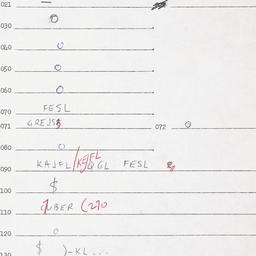 021 —
030 O
040 O
050 O
060 O
070 FESL
071 GREJS 072 O
080 O
090 KAJFL/KEJFL GL FESL
100 $
110 UBER (270
120 O
130 $ )-KL...